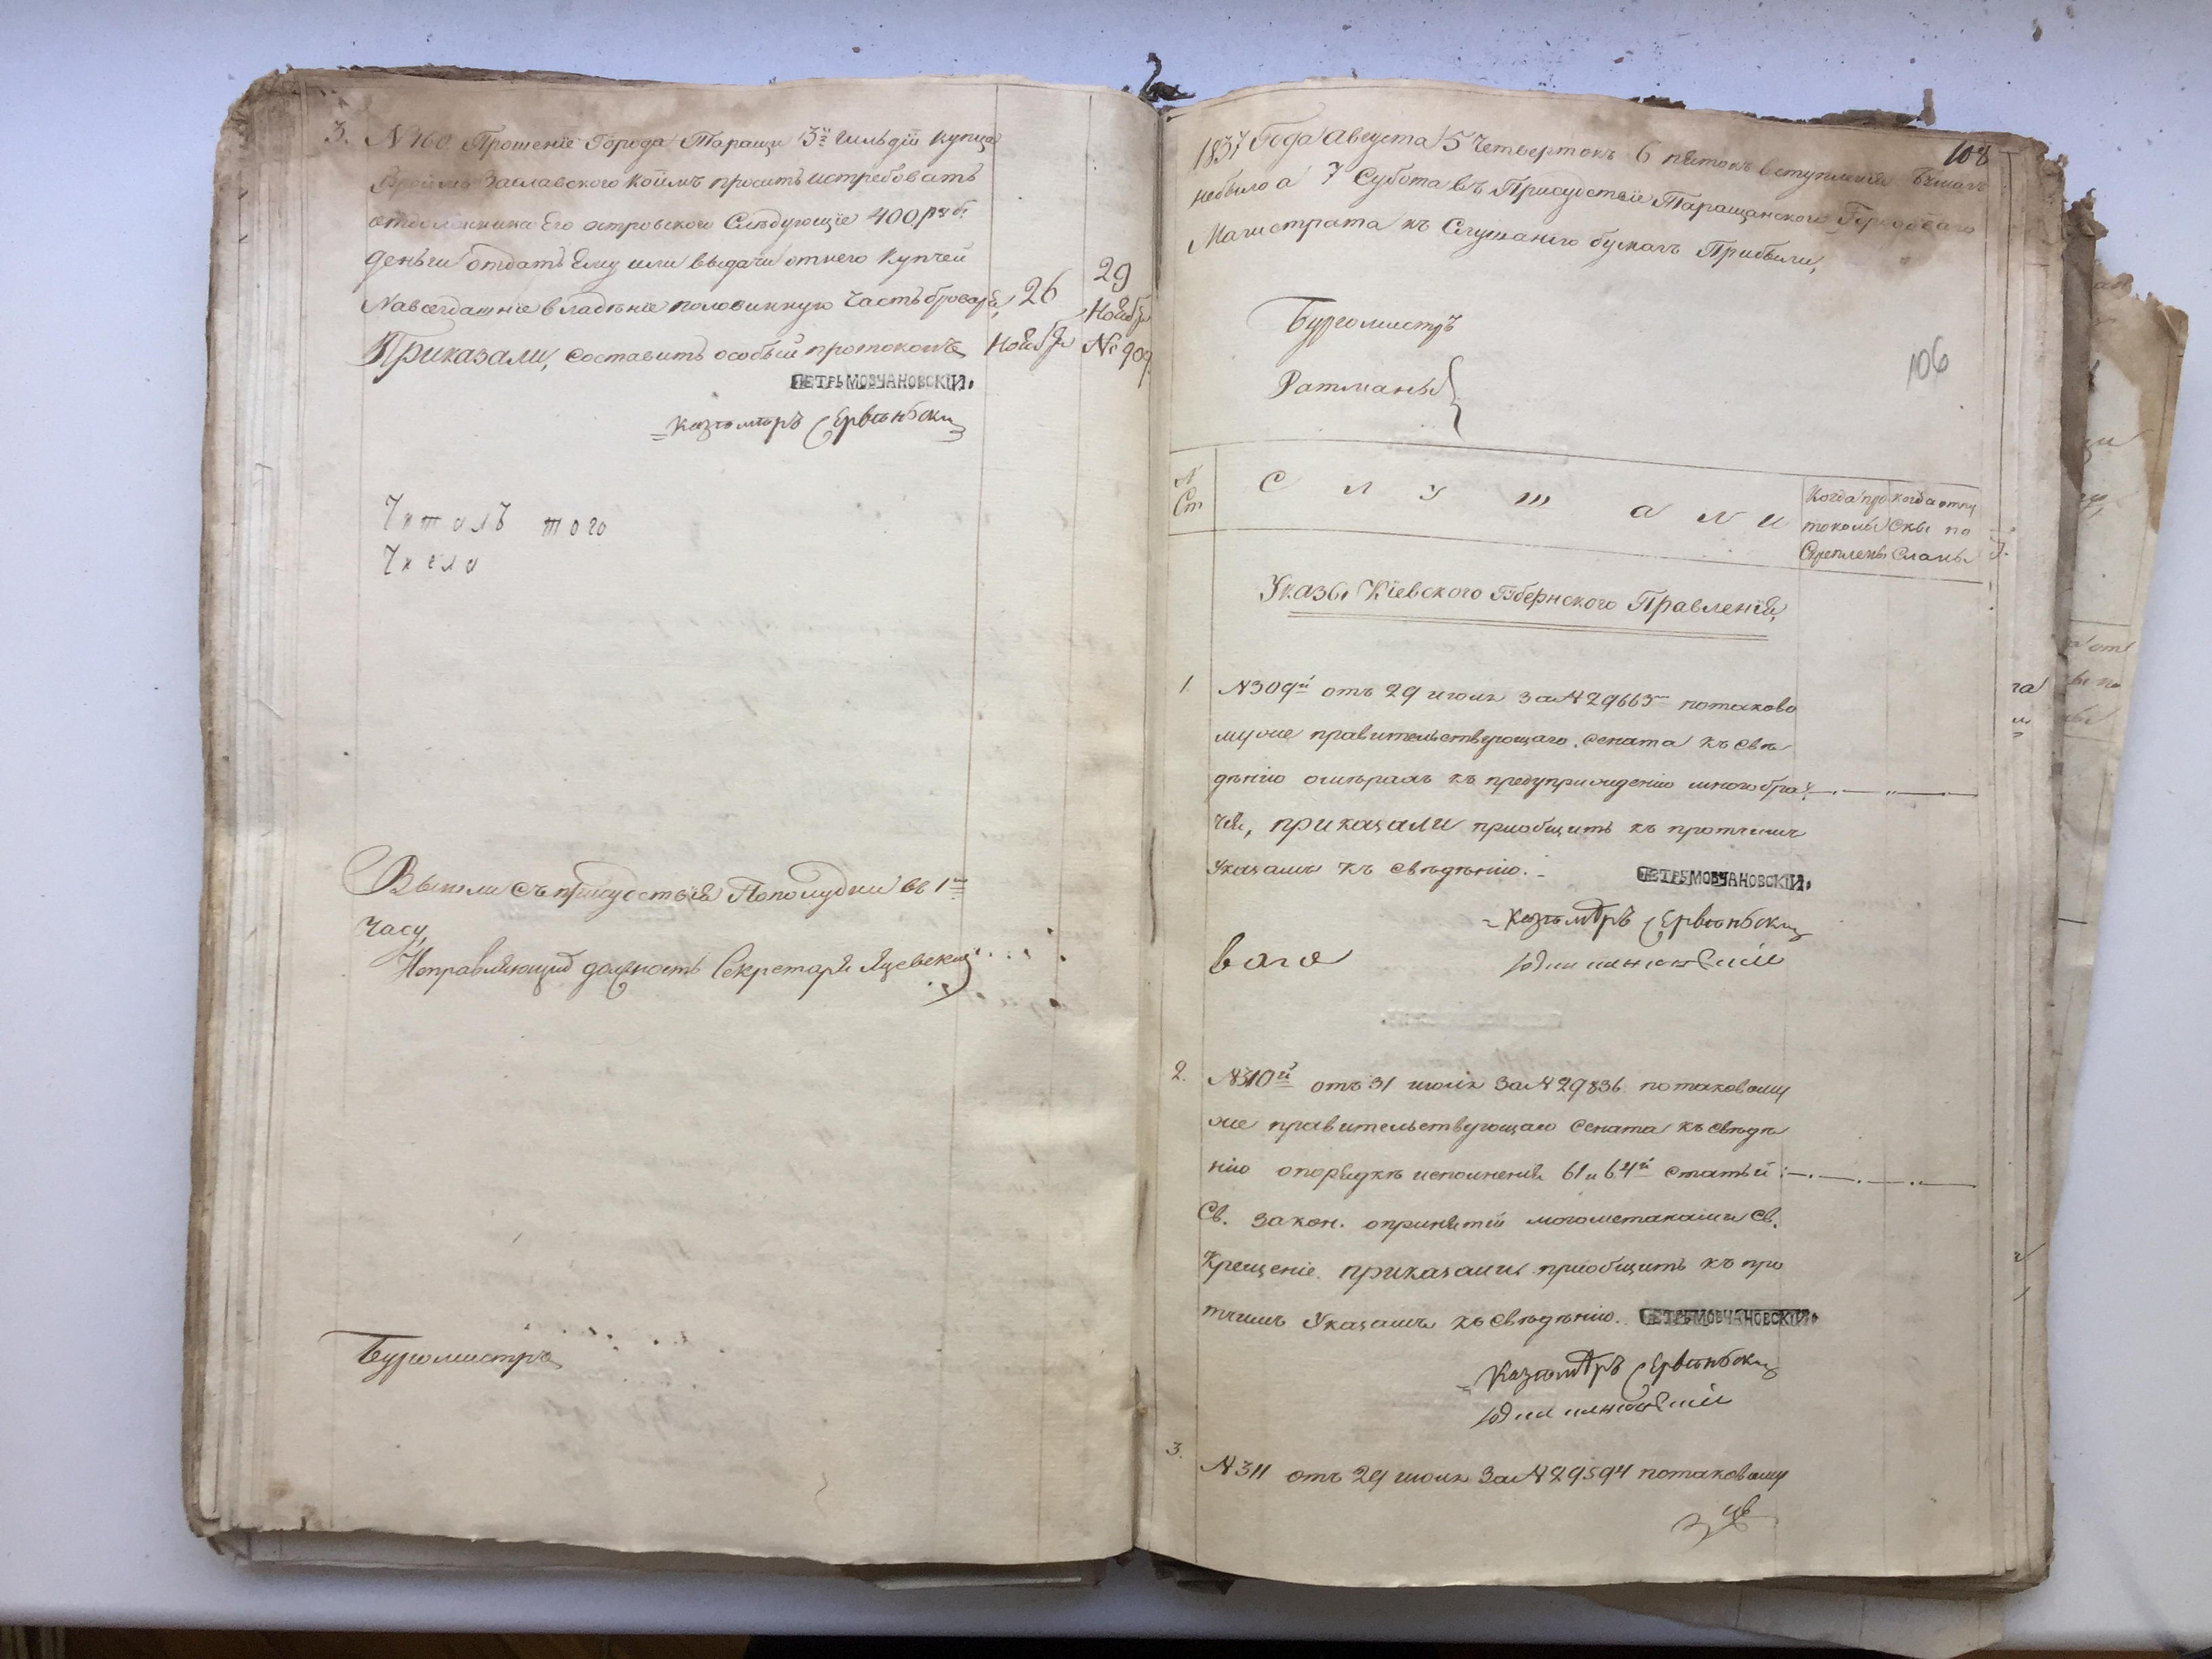 3. N 160. Прошеніе Города Таращи 3й Гильдіи купца
Заславского коимъ проситъ истребовать
Его островского Слѣдующіе 400 руб:
деньги отдать Ему или выдачи отнего Купчей
Навсегдашнее владѣніе половинную Часть бровара, 26 29
Ноябр
Приказали, составить особый протоколъ Ноябр № 909
ПЕТРЪ МОВЧАНОВСКІЙ.
того
Число
Вышли съ присудствія Пополудни въ 1м
Часу,
Исправляющій должность Секретаря Яцевскій
Бургомистръ
108
1837 Года Августа 5 Четвертокъ 6 пятокъ вступленія бумагъ
небыло а 7 Субота въ Присудствіе Таращанского Городоваго
Магистрата къ Слушанію бумагъ Прибыли,
Бургомистръ
Ратманы {
106
N Ст
С л у ш а л и
Когда про когда отпу
токолы скы по
Скреплены сланы
Указы Кіевского Губернского Правленія,
1. N 309й отъ 29 июля за N 29663м потаково
муже правительствующаго сената къ свѣ
дѣнію омѣрахъ къ предупрежденію многобра
чія, приказали приобщить къ протчимъ
Указамъ къ свѣдѣнію.
ПЕТРЪ МОВЧАНОВСКІЙ.
2. N 310й отъ 31 июля за N 29836 потаковому
же правительствующаго сената къ свѣдѣ
нію опорядкѣ исполненія 61 и 64й статьи
Св. закон. опринятіи могометанами Св.
Крещеніе. приказали приобщить къ про
тчимъ Указамъ къ свѣдѣнію. ПЕТРЪ МОВЧАНОВСКІЙ.
3. N 311 отъ 29 июля за N 29594 потаковому